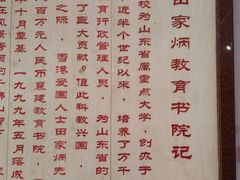 田家炳教育书院记
校为山东省属重点大学，创办于
近半个世纪以来，培养了万千
育行政管理人员，为山东省的
了巨大贡献。值此科教兴国
之际，香港爱国人士田家炳先
百万元人民币襄建教育书院，
十月奠基，一九九九年五月落成